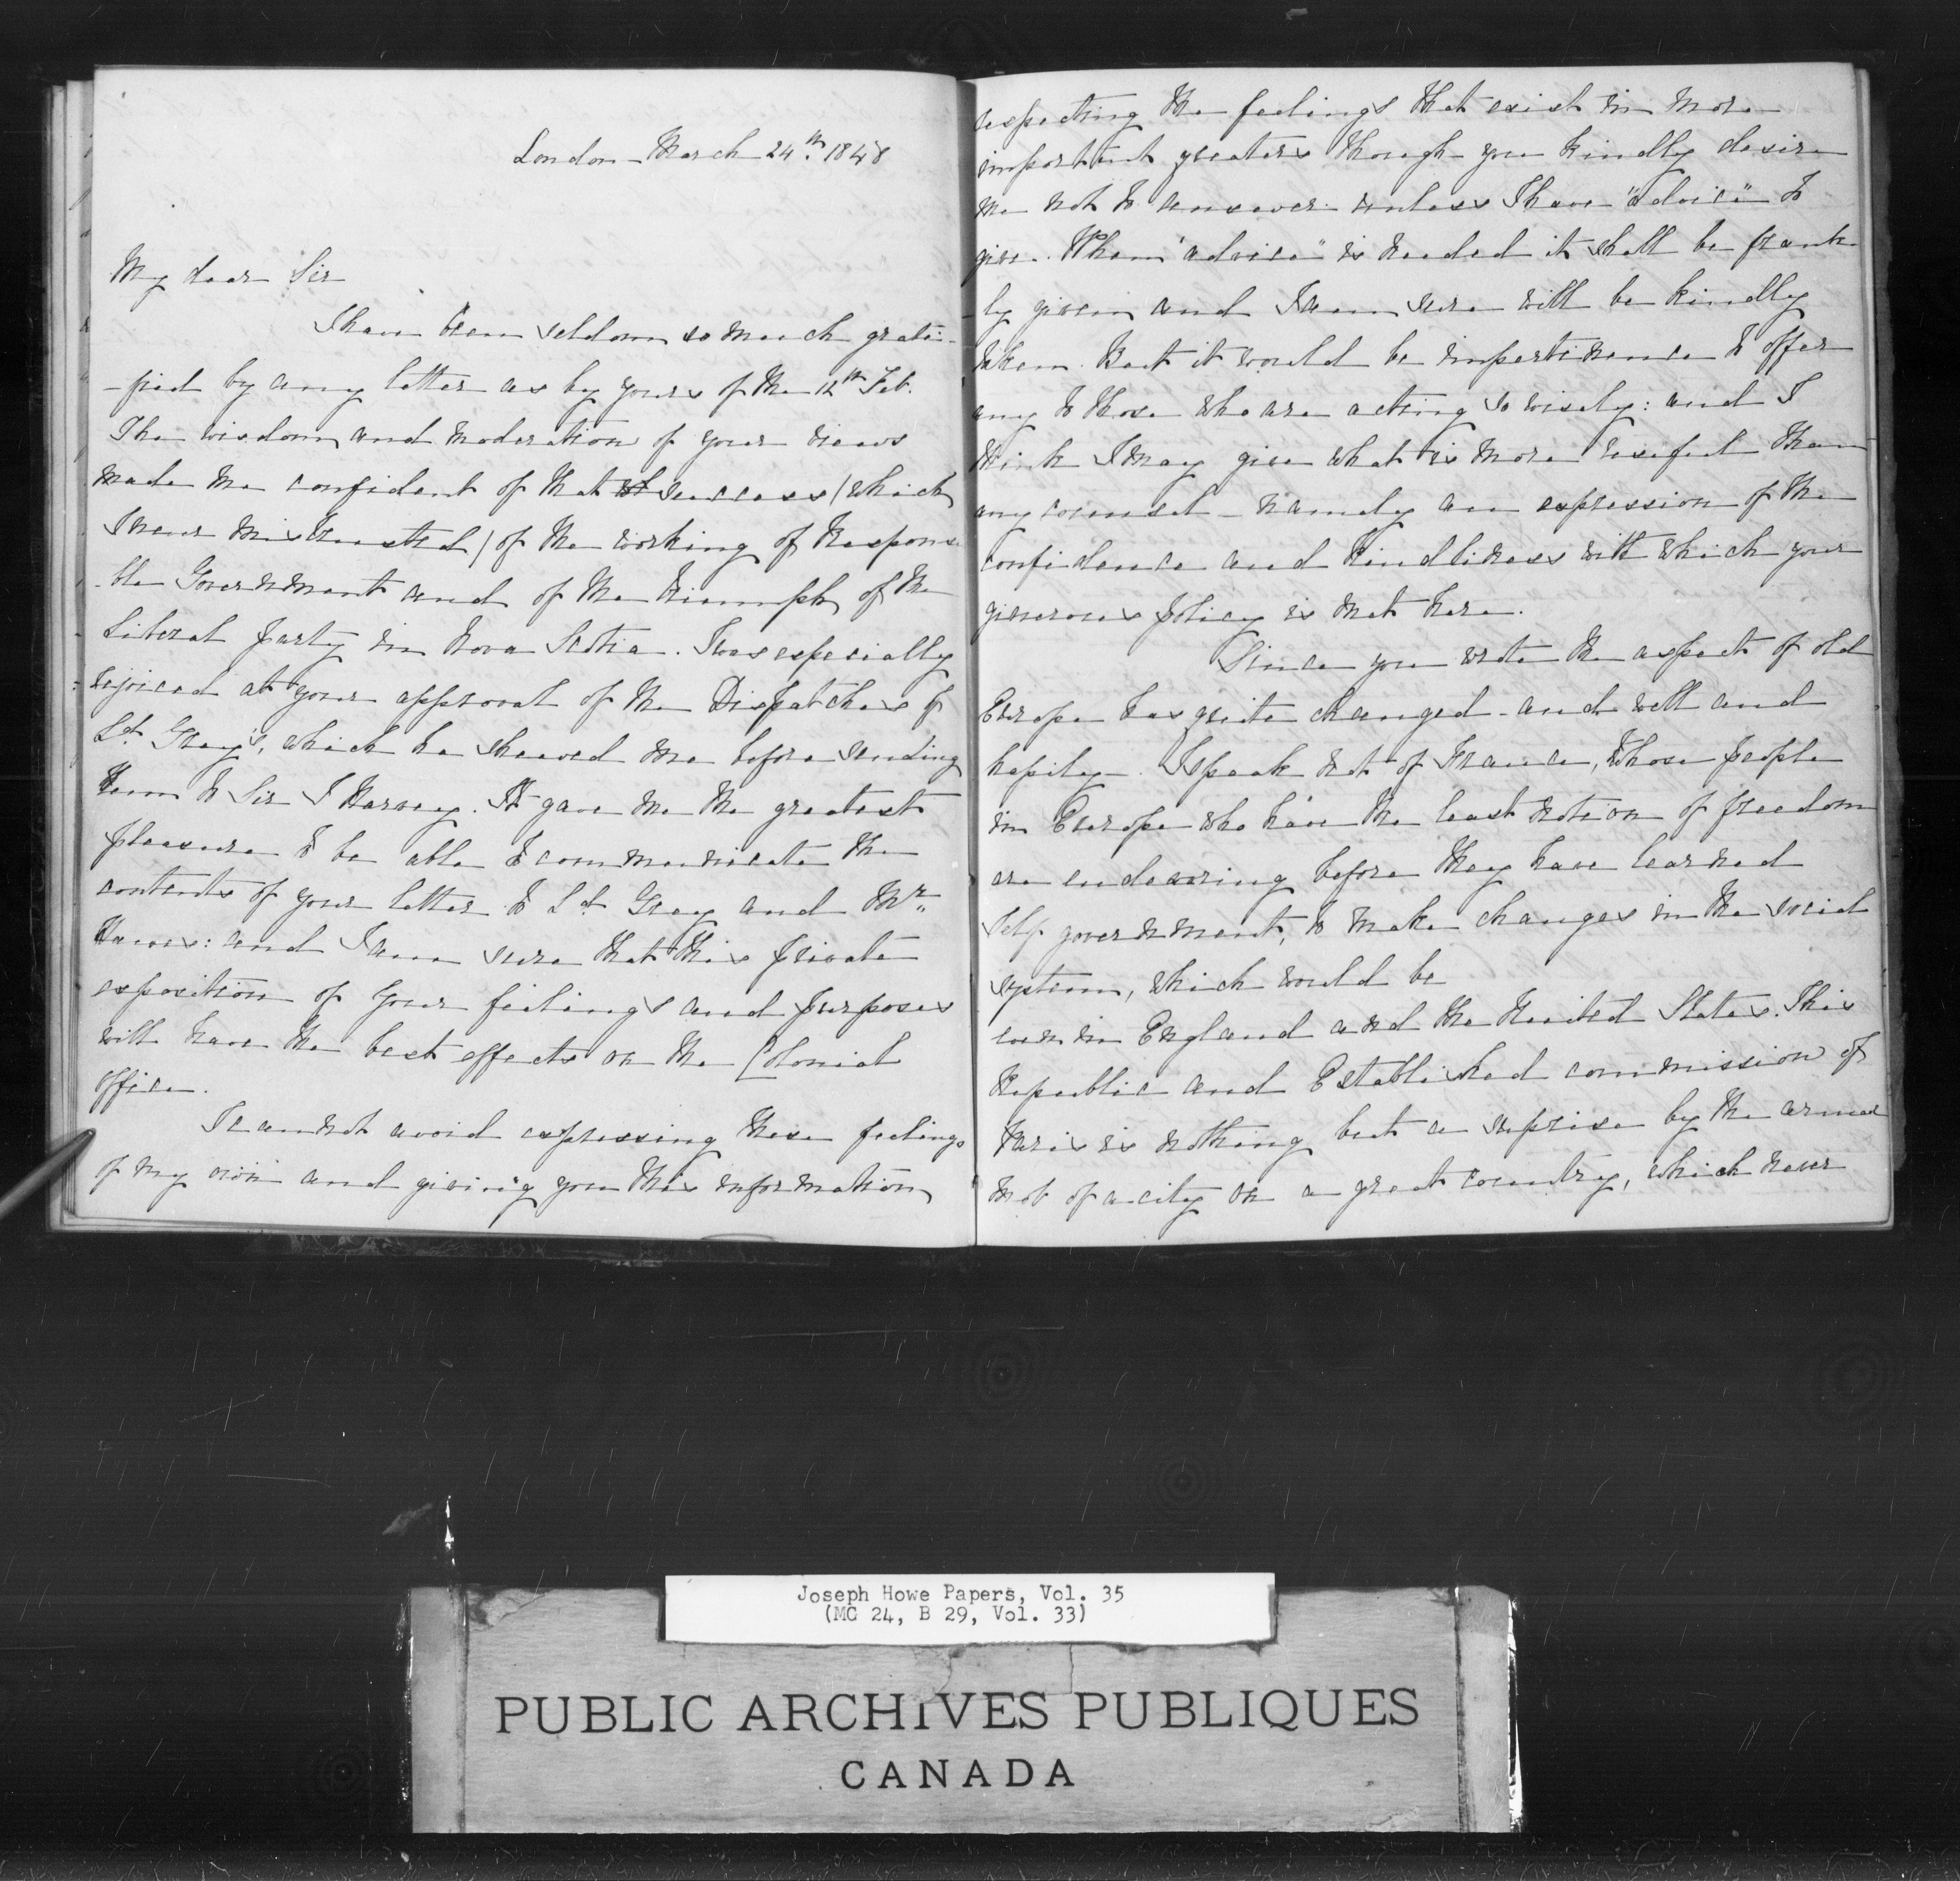 London - March 24th. 1848
My dear Sir
I have been seldom so much grati-
-fied by any letter as by yours of the 12th Feb.
The wisdom and moderation of your views
made me confident of that success (which
I never mistrusted) of the working of Responsi
-ble Government and of the triumph of the
Liberal party in Nova Scotia. I was especially
rejoiced at your approval of the Dispatches of
Ld. Grey's, which he shewed me before sending
them to Sir J Harvey. It gave me the greatest
pleasure to be able to communicate the
contents of your letter to Ld. Grey and Mr.
Hawes: and I am sure that this private
exposition of your feelings and purposes
will have the best effects on the Colonial
Office.
I cannot avoid expressing these feelings
of my own and giving you this information
respecting the feelings that exist in more
important quarters though you kindly desire
me not to answer unless I have "advice" to
give. When "advice" is needed it shall be frank
-ly given and I am sure will be kindly
taken. But it would be impertinence to offer
any to those who are acting so wisely: and I
think I may give what is more useful than
any counsel - namely an expression of the
confidence and kindliness with which your
generous policy is met here.
Since you wrote the aspect of old
Europe has quite changed - and well and
hapily -. I speak not of France, whose people
in Europe who have the least notion of freedom
are endeavoring before they have learned
self government, to make changes in the social
system, which would be
even in England and the United States. This
Republic and Established commission of
Paris is nothing but a suprise by the armed
mob of a city on a great country, which never
Joseph Howe Papers, Vol. 35
(MG 24, B 29, Vol. 33)
PUBLIC ARCHIVES PUBLIQUES
CANADA